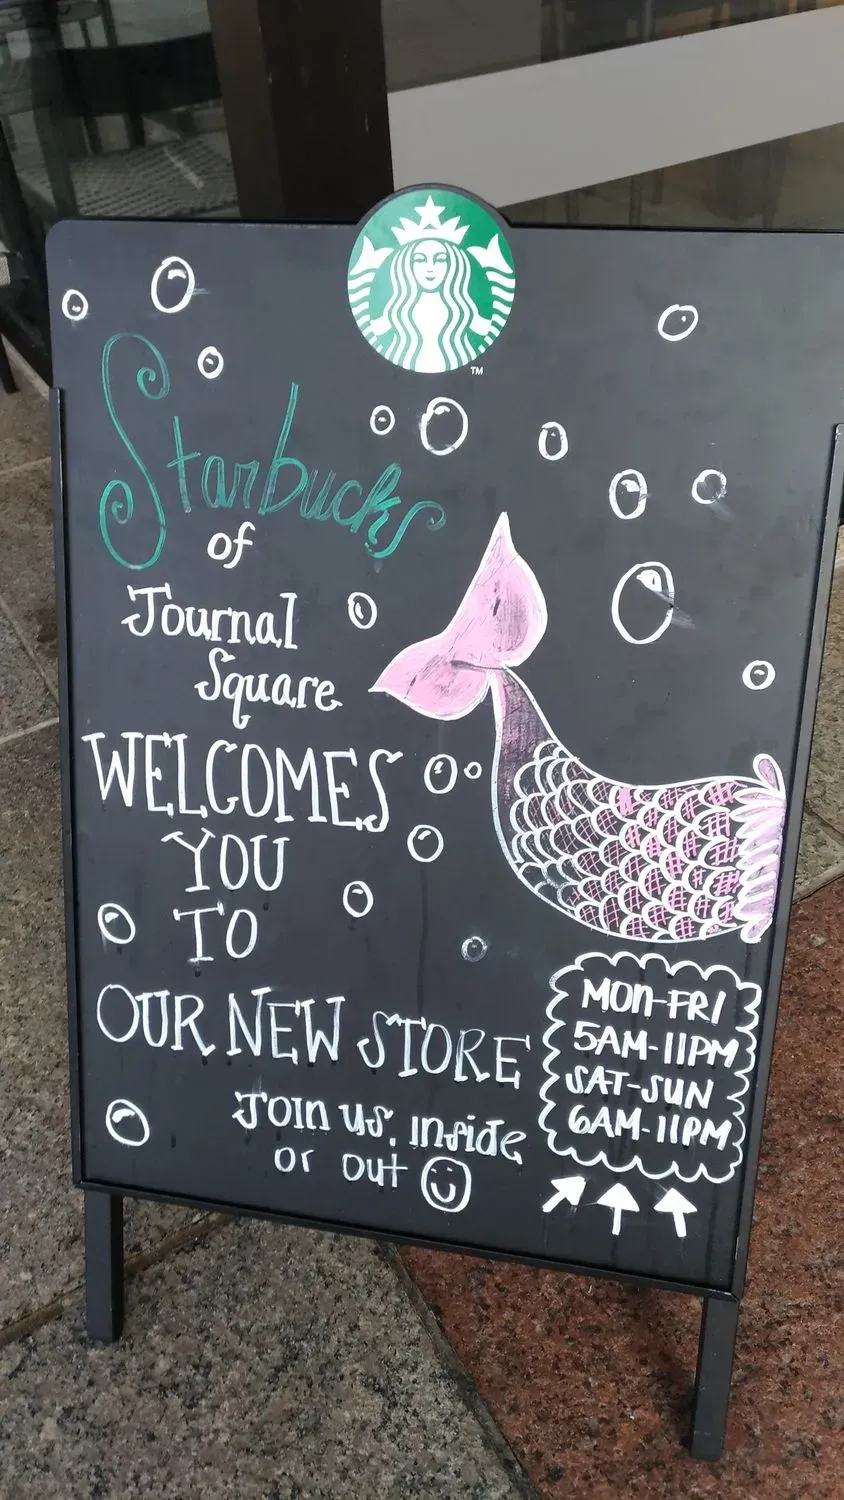 TM
Starbucks
of
Journal
Square
WELCOMES
YOU
TO
OUR NEW STORE
Join us, inside
or out
MON-FRI
5AM-11PM
SAT-SUN
6AM-11PM